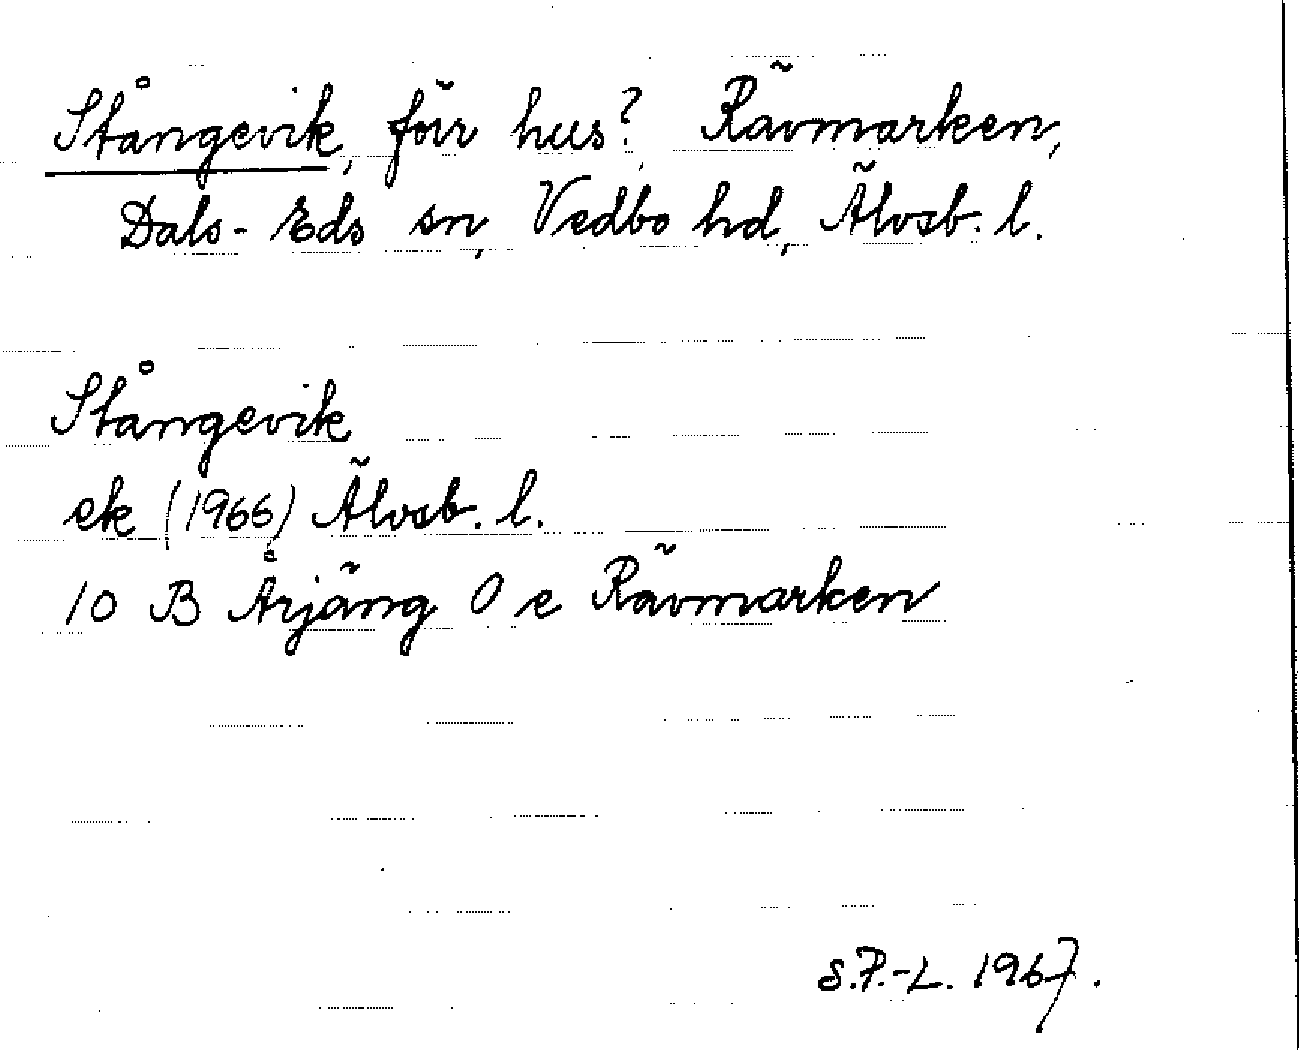 Stångevik, förr hus? Rävmarken,
Dals-Eds sn, Vedbo hd, Älvsb. l.
Stångevik
ek (1966) Älvsb. l.
10 B Årjäng O e Rävmarken
S.P.-L. 1967.